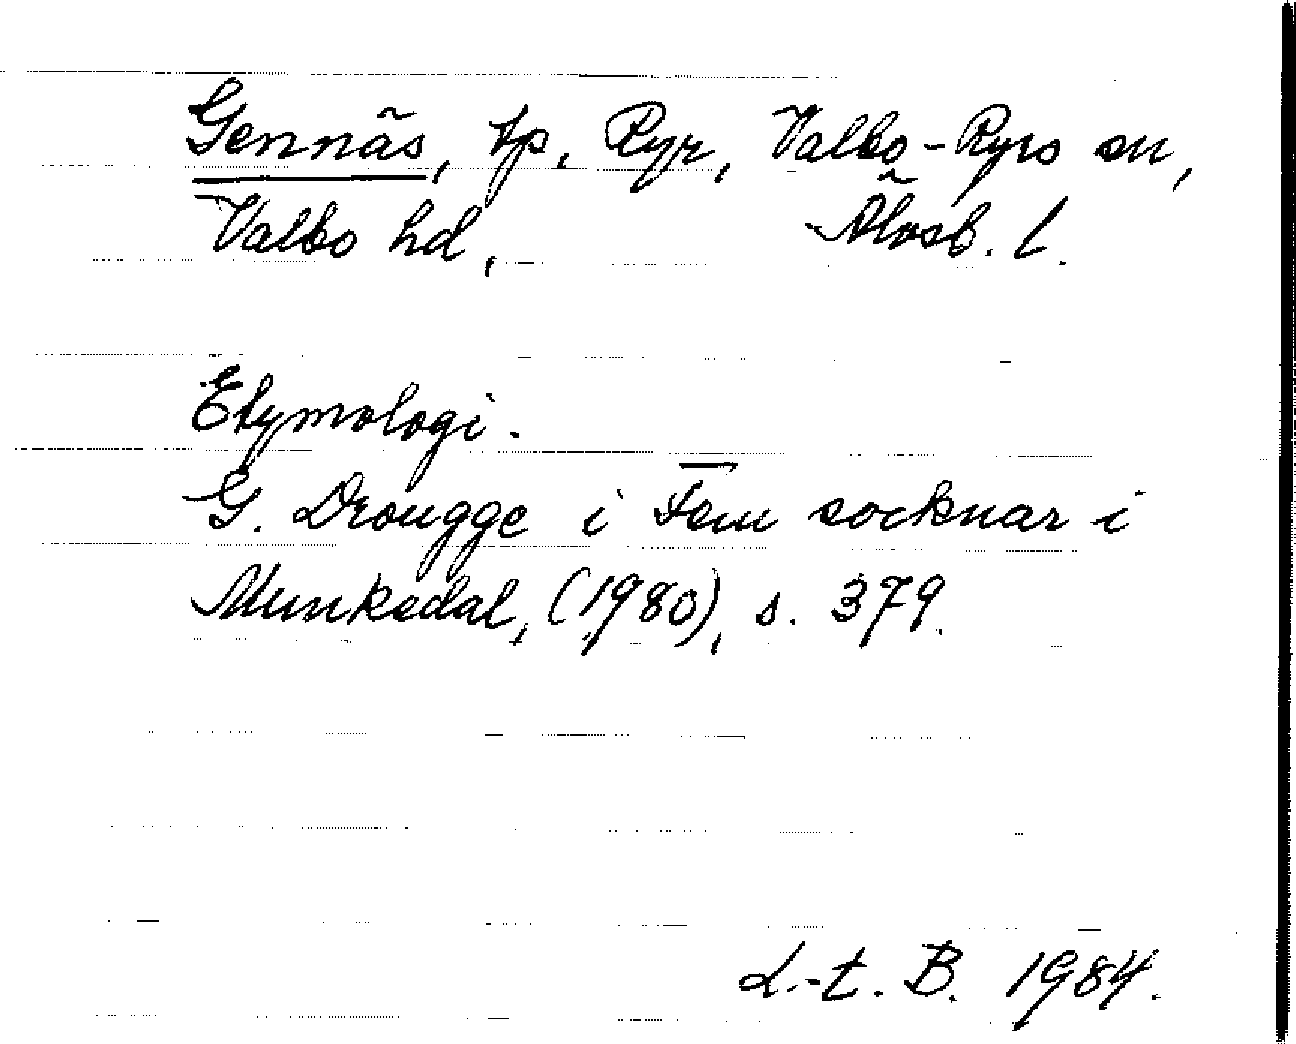 Gennäs, tp, Ryr, Valbo-Ryrs sn,
Valbo hd, Älvsb. l.
Etymologi.
G. Drougge i Fem socknar i
Munkedal, (1980), s. 379.
L.-t. B. 1984.